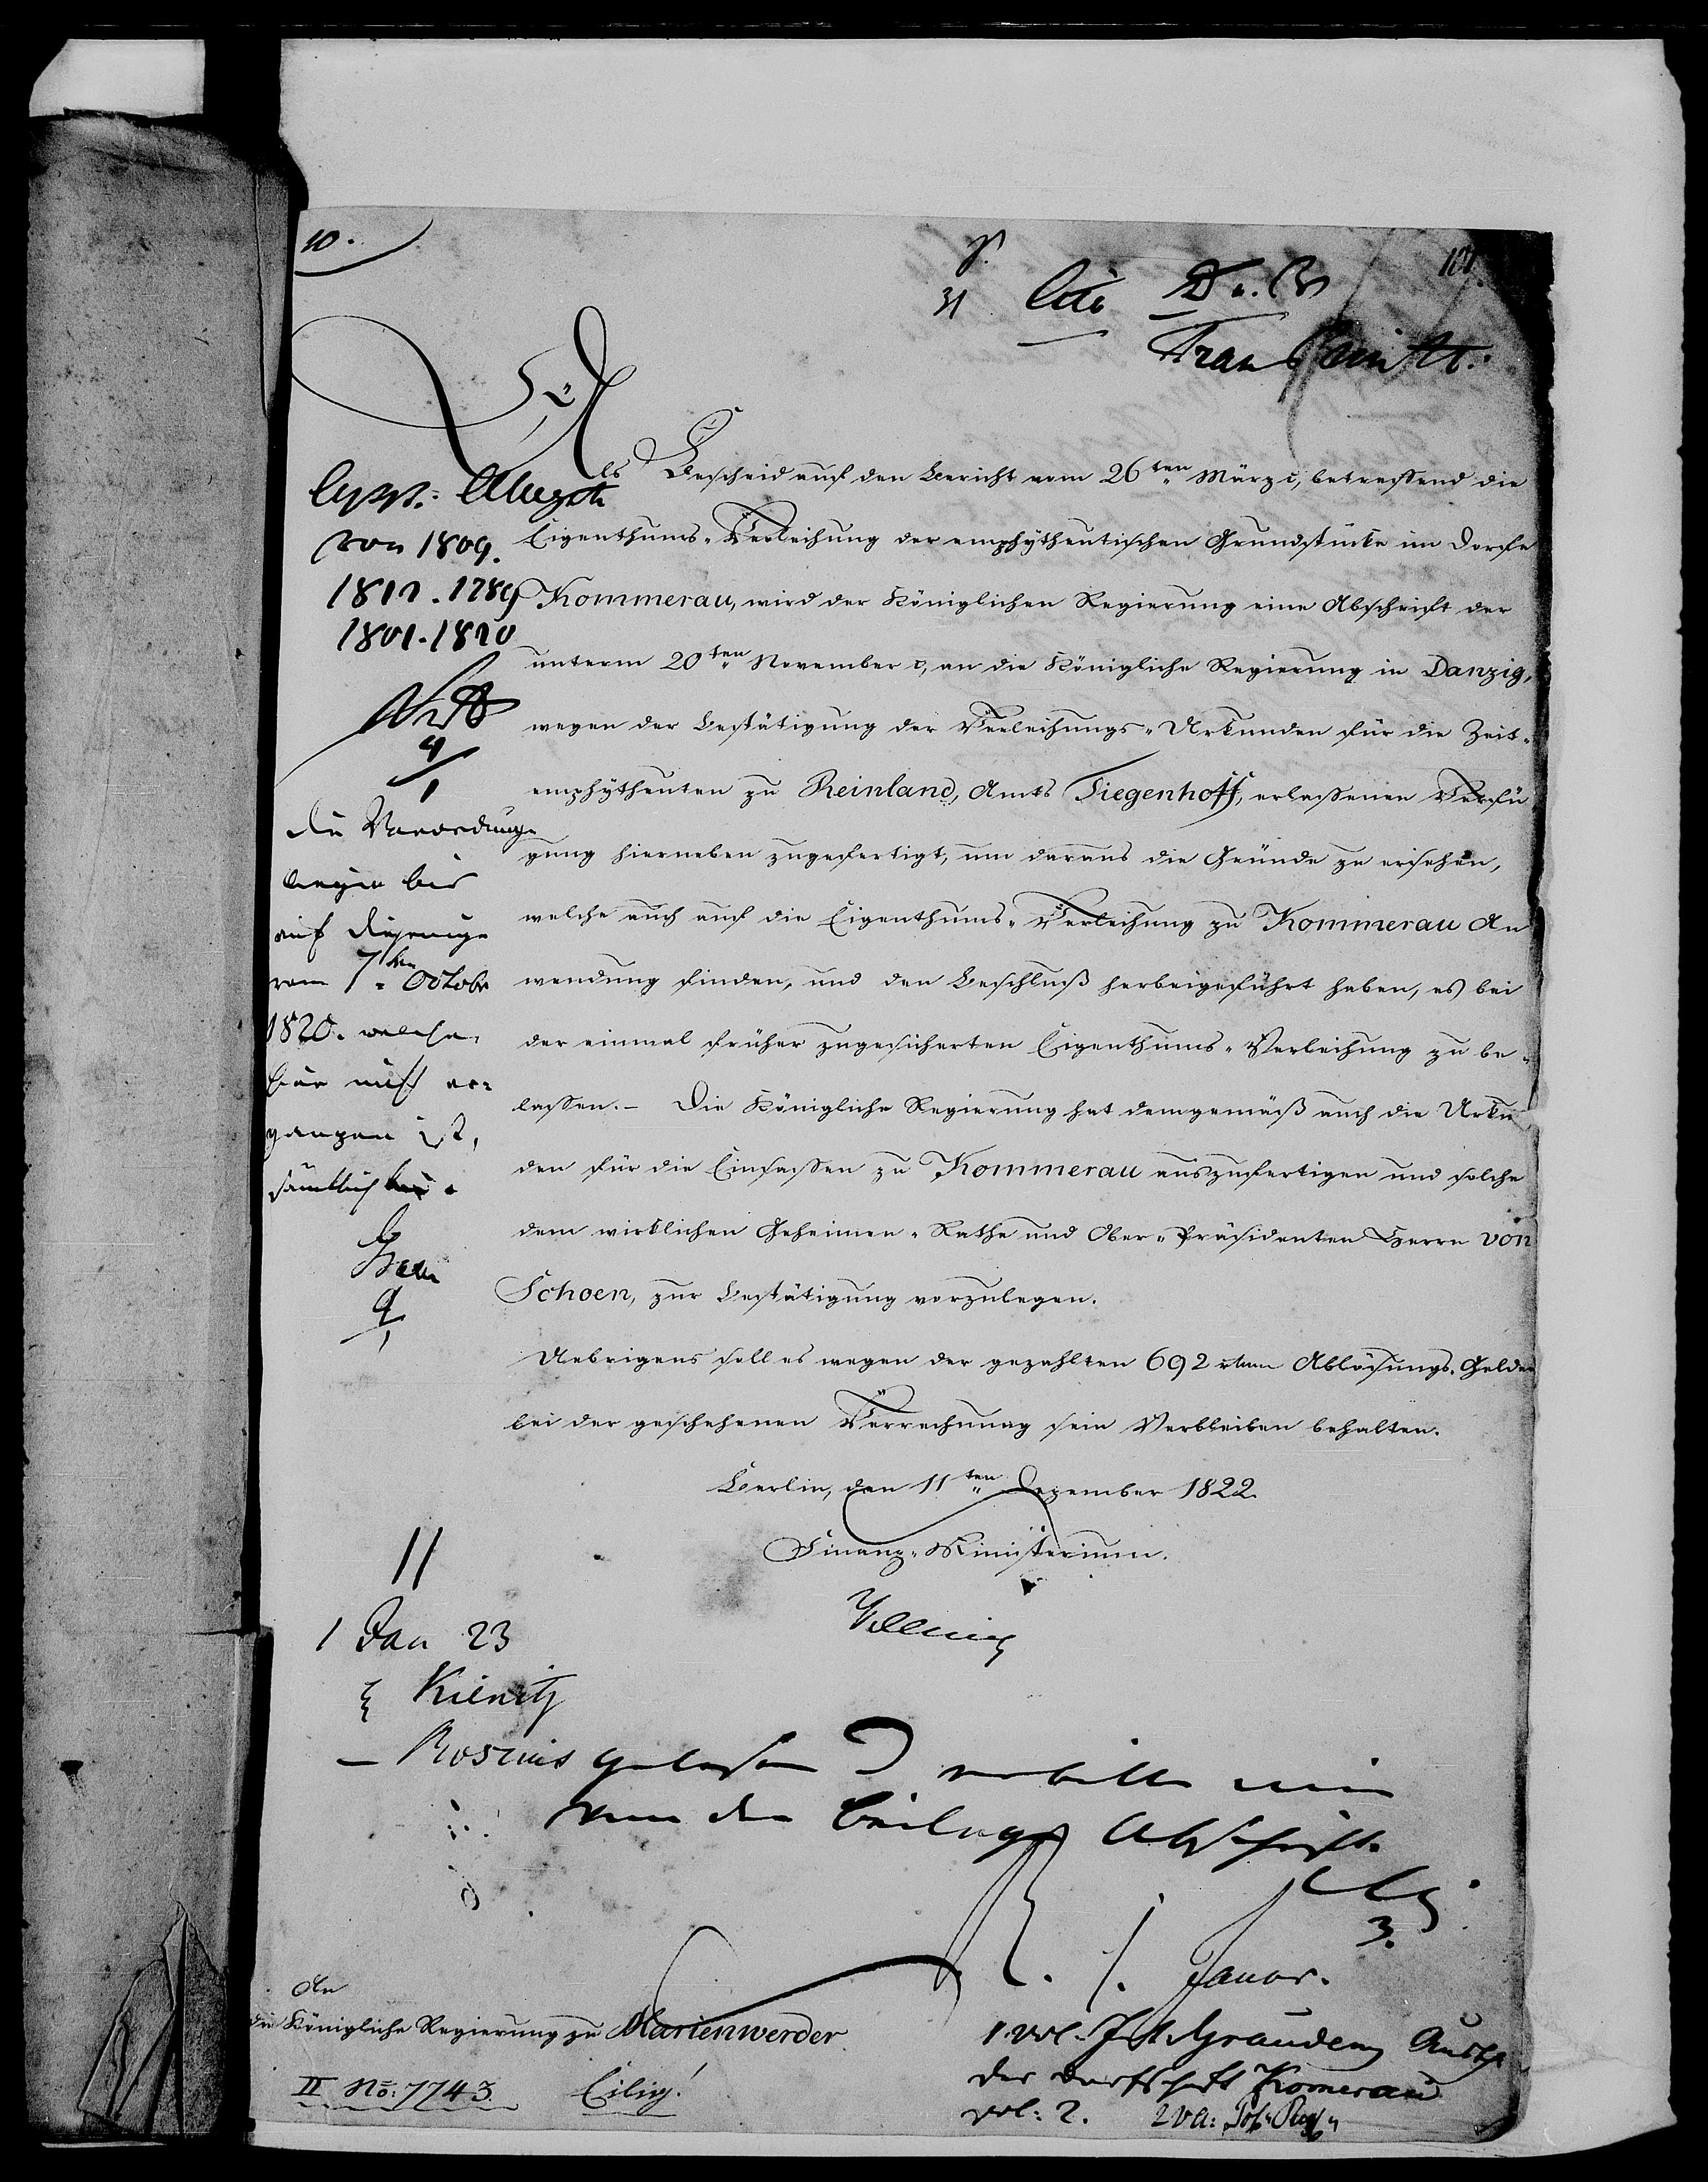 10.
31 Cito
101
Als Bescheid auf den Bericht vom 26ten März c, betreffend die
Eigenthums-Verleihung der emphÿtheutischen Grundstücke im Dorfe
Kommerau, wird der Königlichen Regierung eine Abschrift der
unterm 20ten November c, an die Königliche Regierung in Danzig,
wegen der Bestätigung der Verleihungs-Urkunden für die Zeit-
emphÿtheuten zu Reinland, Amts Tiegenhoff, erlassenen Verfü
gung hierneben zugefertigt, um daraus die Gründe zu ersehen,
welche auch auf die Eigenthums-Verleihung zu Kommerau An
wendung finden, und den Beschluß herbeigeführt haben, es bei
der einmal früher zugesicherten Eigenthums-Verleihung zu be-
lassen. – Die Königliche Regierung hat demgemäß auch die Urku
den für die Einsassen zu Kommerau auszufertigen und solche
dem wirklichen Geheimen-Rathe und Ober-Präsidenten Herrn von
Schoen, zur Bestätigung vorzulegen.
Uebrigens soll es wegen der gezahlten 692 rthlr Ablösungs-Gelder
bei der geschehenen Verrechnung sein Verbleiben behalten.
Berlin, den 11ten Dezember 1822.
Finanz-Ministerium.
von 1809.
1811. 1789
1801. 1820
9/1
die Verordnung
liegen bis
auf diejenige
vom 7ten Octobr
1820. welche
hier nicht er-
gangen ist,
sämtlich bei.
9/1
11
1 Jan 23
Kienitz
Rosenus gelesen
von der Beilage Abschrift.
3.
Januar.
An
die Königliche Regierung zu Marienwerder
II No: 7743. Eilig!
der Dorfschaft Komerau
vol: 2.